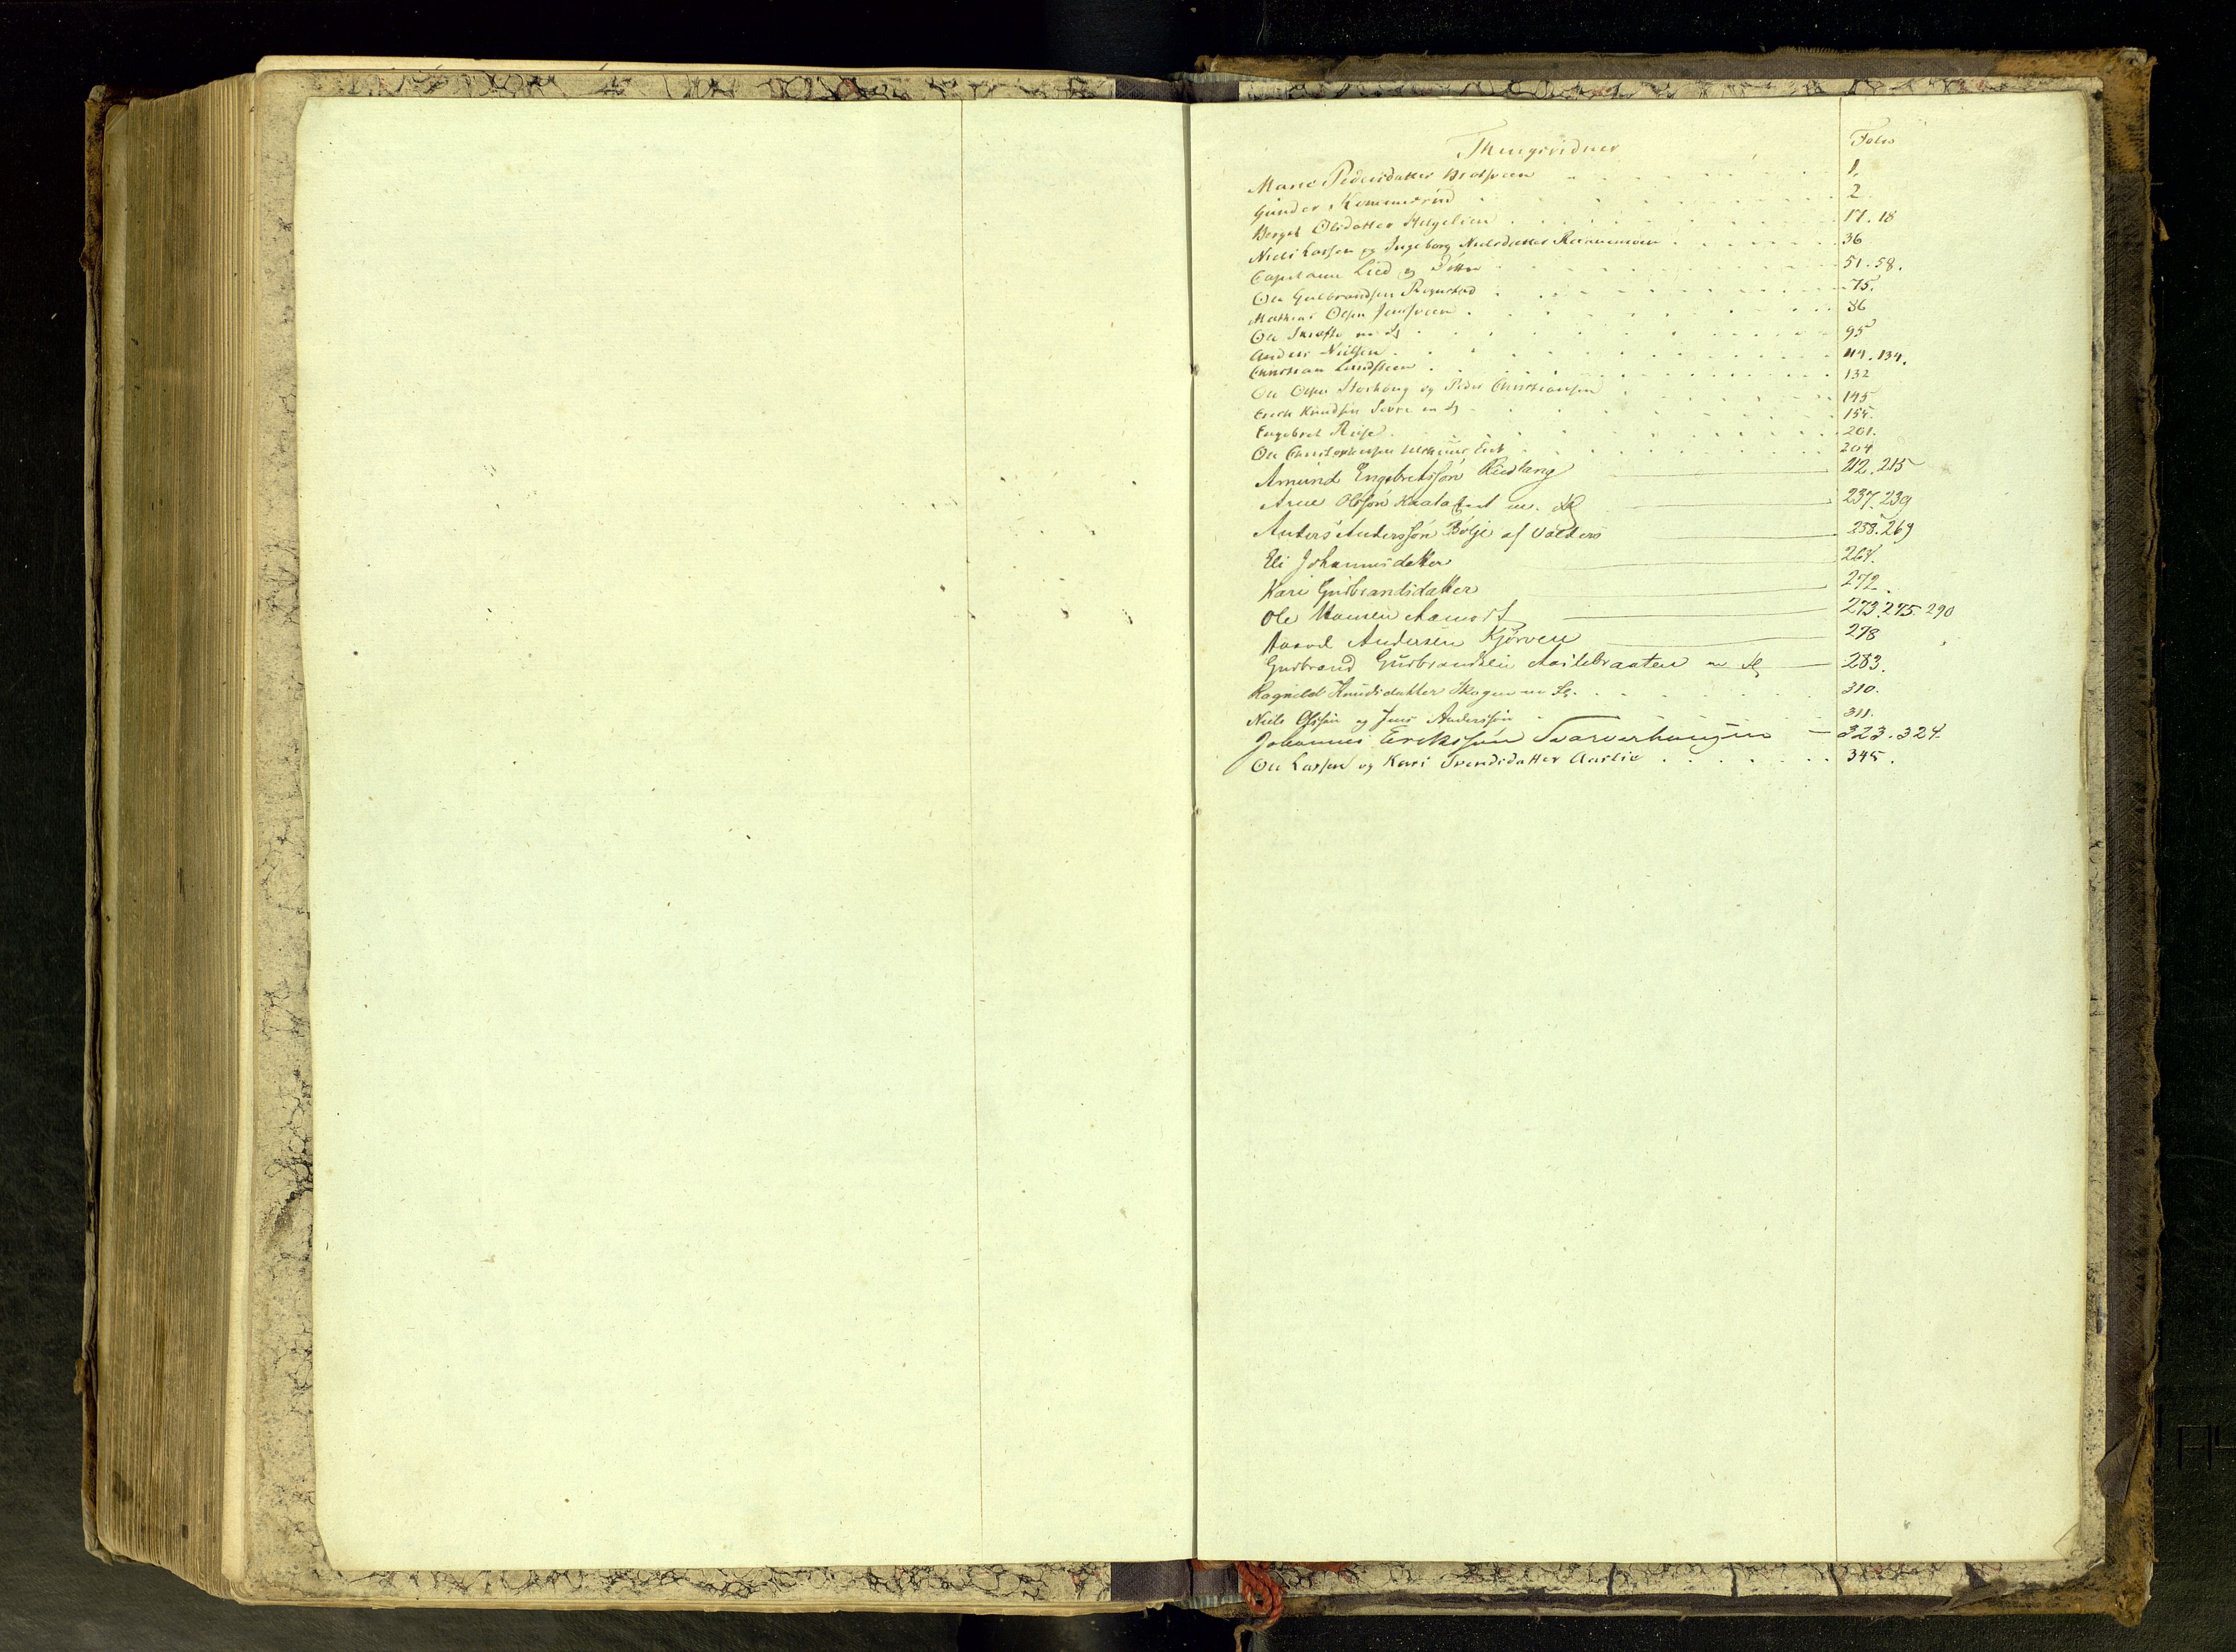 Thingsvidner Folio
Marie Pedersdatter 1.
Gunder Kommerud 2
Berget Olsdatter Helgelien 17. 18
Niels Larsen og Ingeborg Nielsdatter 36
Capitaine Lied og 51. 58.
Ole Gulbrandsen Rognstad 75.
Mathias Olsen Jensveen 86
Ole m Fl 95
Anders Nielsen 119. 134.
Christian Lundsteen 132
Ole Olsen Storhaug og Peder Christiansen 145
Erich Knudsen m Fl 154.
Engebret Riise 201.
Ole Christophersen 204
Amund Engebretssøn 212. 215
Arne Olssøn m. Fl 237. 239
Anders Anderssøn Bølje af Valders 258. 269
Eli Johannesdatter 264.
Kari Gudbrandsdatter 272.
Ole Hansen Aamodt 273. 275. 290
Haavel Andersen Kjørven 278
Gudbrand Gudbrandsen m Fl 283.
Ragnild Knudsdatter Skogen m Fl. 310.
Niels Olssøn og Jens Anderssøn 311.
Johannes Erikssøn Svarverhaugen 323. 324.
Ole Larsen og Kari Svendsdatter Aaslie 345.